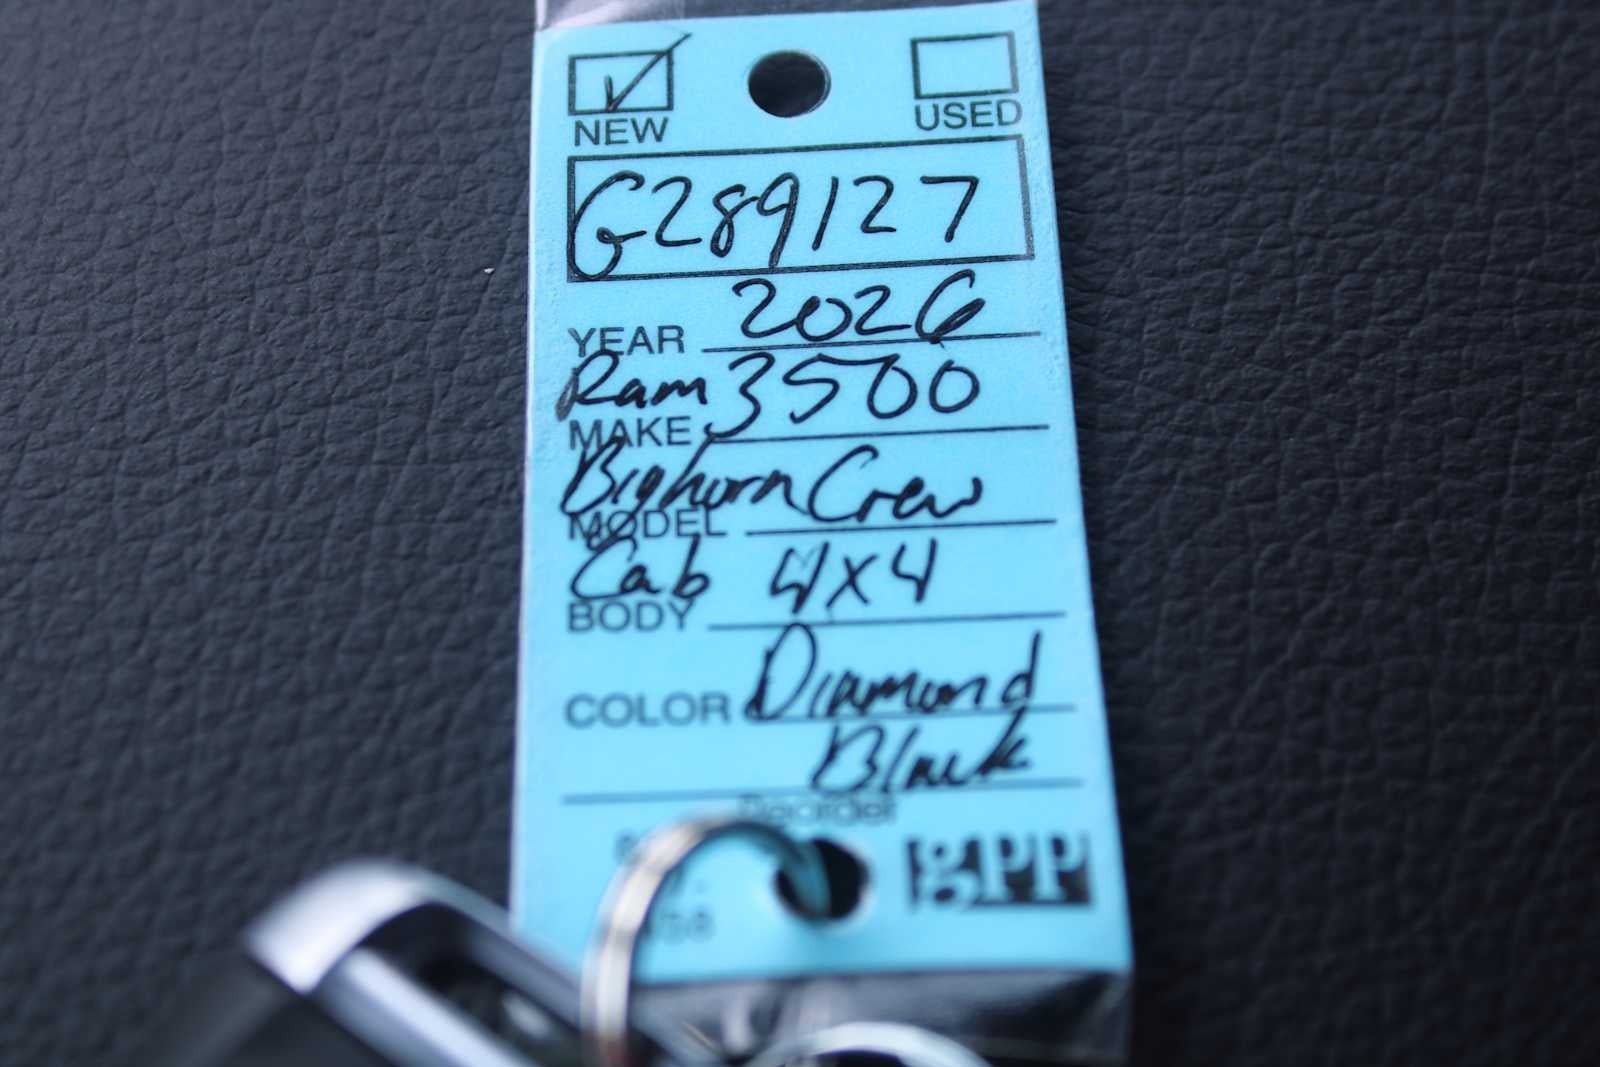 NEW USED
G289127
YEAR 2026
Ram 3500
MAKE
Bighorn Crew
MODEL
Cab 4x4
BODY
COLOR Diamond
Black
Reorder
gpp